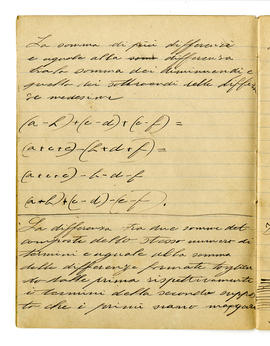 La somma di più differenze
è eguale alla differenza
tra la somma dei minuendi e
quella dei sottraendi delle differen
ze medesime
(a-b)+(c-d)+(e-f)=
(a+c+e)-(b+d+f)=
(a+c+e)-b-d-f
(a+b)+(c-d)-(e-f).
La differenza tra due somme
composte dello stesso numero di
termini è eguale alla somma
delle differenze formate
dalla prima rispettivamente
i termini della seconda
to che i primi siano